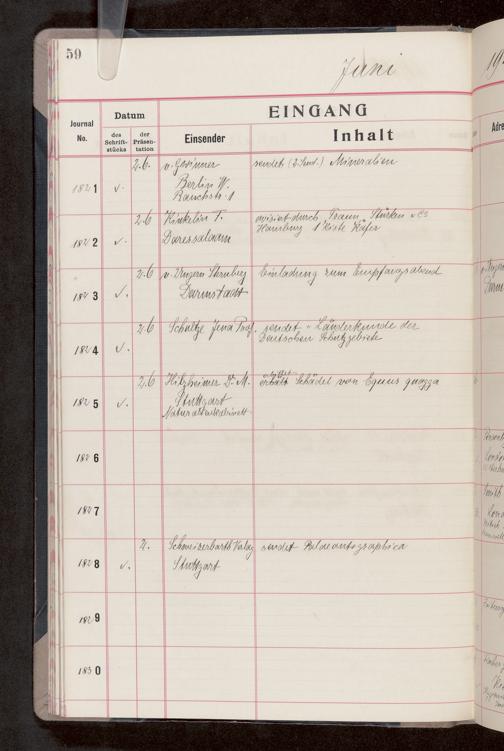 59
Juni
EINGANG
Journal No.
Datum
des Schrift-stücks
der Präsen-tation
Einsender
Inhalt
1821 v. 2.6. v. Gwinner sendet Mineralien
Berlin W.
Rauchstr. 1
1822 v. 2.6 T. avisiert durch Traun, Stürken & Co
Daressalaam Hamburg 1 Kiste Käfer
1823 v. 2.6 v. Ungern Sternberg Einladung zum Empfangsabend
Darmstadt
1824 v. 2.6 Schultze Jena Prof. sendet "Länderkunde der
Deutschen Schutzgebiete
1825 v. 2.6 Hilzheimer Dr. M. Schädel von Equus quagga
Stuttgart
Naturalienkabinett
1826
1827
1828 v. 2. Schweizerbarth Verlag sendet Palaeontographica
Stuttgart
1829
1830
19
Adre